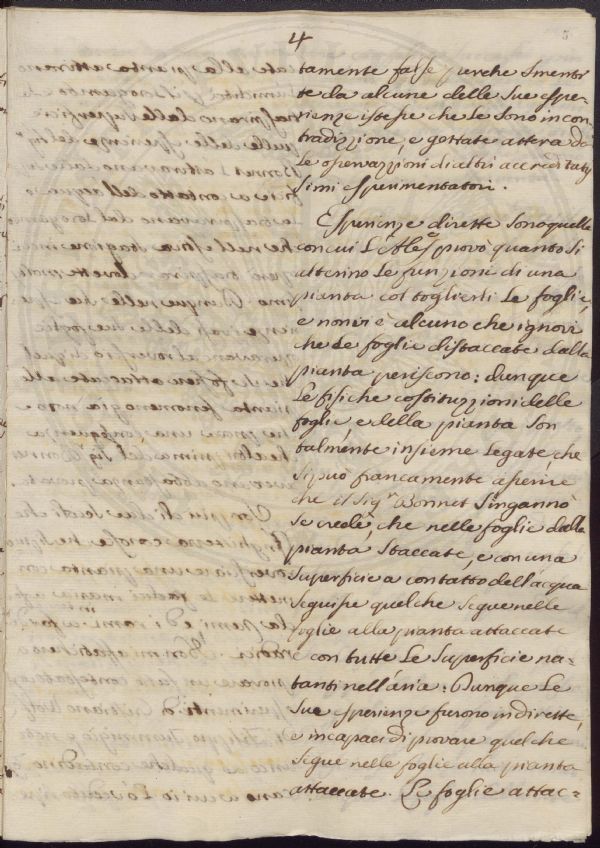 4
5
tamente false perche smenti
te da alcune delle sue espe-
rienze istesse che le sono in con
tradizzione, e gettate a terra da
le osservazzioni di altri accreditatis
simi esperimentatori.
Esperienze dirette sono quelle
con cui L'Ales provò quanto si
alterino le funzioni di una
pianta col toglierli le foglie,
e non vi è alcuno che ignori
che le foglie distaccate dalla
pianta periscono: dunque
le fisiche costituzzioni delle
foglie, e della pianta son
talmente insieme legate, che
si può francamente asserire
che il Sigr Bonnet s'ingannò
se credè, che nelle foglie dalla
pianta staccate, e con una
superficie a contatto dell'acqua
seguisse quelche segue nelle
foglie alla pianta attaccate
e con tutte le superficie na-
tanti nell'aria: Dunque le
sue esperienze furono indirette,
e incapaci di provare quelche
segue nelle foglie alla pianta
attaccate. Le foglie attac-